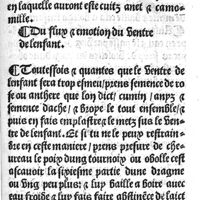 en laquelle auront este cuitz anet & camo-
mille.
¶Du flux & emotion du ventre
de lenfant.
¶Toutesfois & quantes que le ventre de
lenfant sera trop esmeu/prens semence de ro
se ou antiere que lon dict/cumin/anys &
semence dache/& broye le tout ensemble/&
puis en fais emplastre & le metz sus le ven-
tre de lenfant. Et si tu ne peux restrain-
dre en ceste maniere/prens presure de che-
ureau le poix dung tournoix ou obolle cest
scauoir la sixiesme partie dune dragme
ou vng peu plus: & luy baille a boire auec
eau froide & luy fais faire abstinece de laict